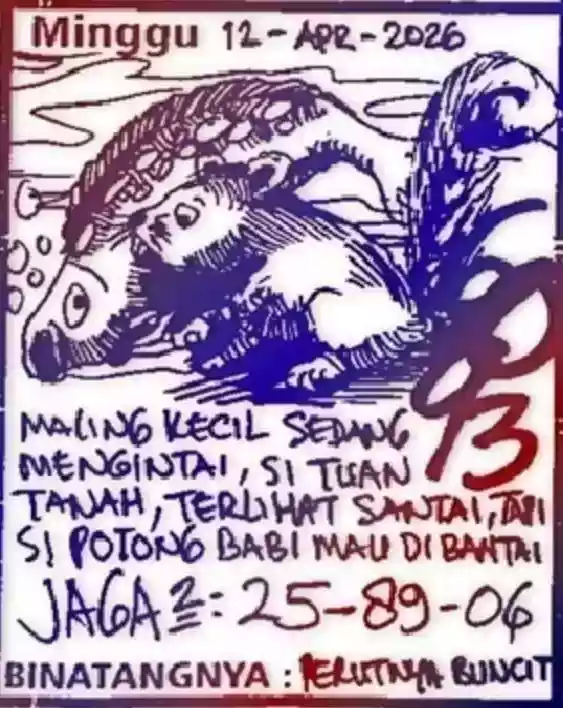 Minggu 12-APR-2026
93
MALING KECIL SEDANG
MENGINTAI, SI TUAN
TANAH, TERLIHAT SANTAI, TAPI
SI POTONG BABI MAU DI BANTAI
JAGA2=: 25-89-06
BINATANGNYA : PERUTNYA BUNCIT